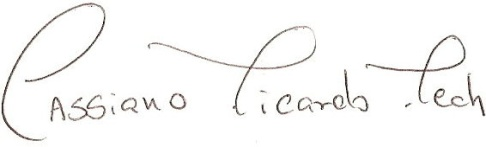 Cassiano Ticardo Tech